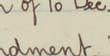 of 10 Dec.
ndment